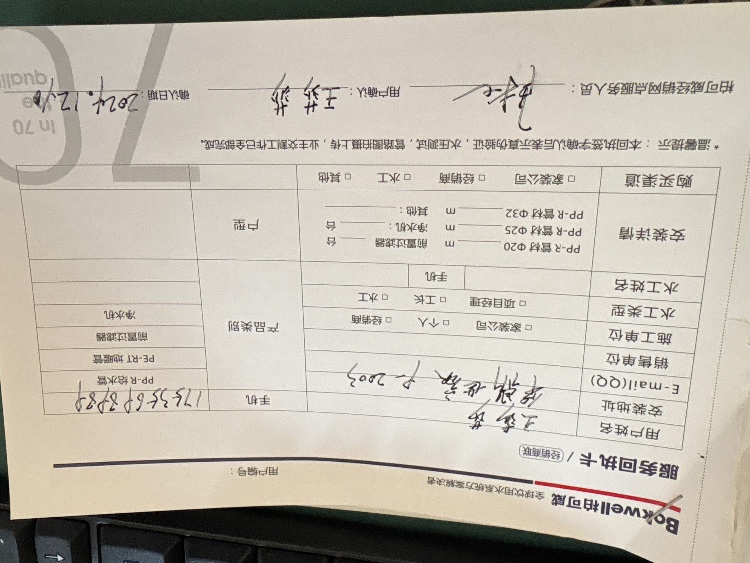 Bokwell柏可威 全球饮用水系统方案解决者
服务回执卡 / 经销商联 用户编号：
用户姓名 王苏苏 手机
安装地址
E-mail(QQ) 产品类别 PP-R 给水管
销售单位 PE-RT 地暖管
施工单位 □ 家装公司 □ 个人 □ 经销商 前置过滤器
水工类型 □ 项目经理 □ 工长 □ 水工 净水机
水工姓名 手机
安装详情 PP-R 管材 Φ20 m 前置过滤器 台 户型
PP-R 管材 Φ25 m 净水机： 台
PP-R 管材 Φ32 m 其他：
购买渠道 □ 家装公司 □ 经销商 □ 水工 □ 其他
* 温馨提示：本回执签字确认后表示真伪验证，水压测试，管路图拍摄上传，业主交测工作已全部完成。
柏可威经销网点服务人员： 用户确认：王苏苏 确认日期：2024.12.16
70
In 70
quali